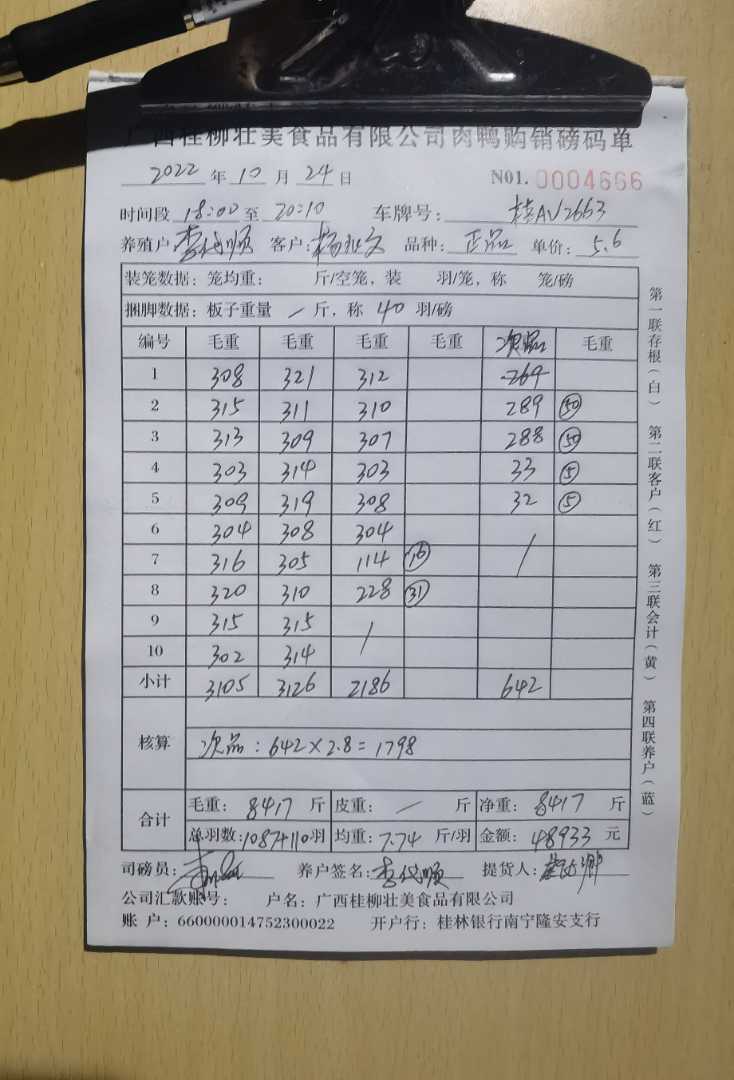 广西桂柳壮美食品有限公司肉鸭购销磅码单
2022 年 10 月 24 日 N01. 0004666
时间段 18:00 至 20:10 车牌号: 桂AV2663
养殖户: 李代顺 客户: 品种: 正品 单价: 5.6
装笼数据: 笼均重: 斤/空笼, 装 羽/笼, 称 笼/磅
捆脚数据: 板子重量 / 斤, 称 40 羽/磅
编号 毛重 毛重 毛重 毛重 次品 毛重
1 308 321 312 269
2 315 311 310 289 50
3 313 309 307 288 50
4 303 314 303 33 5
5 309 319 308 32 5
6 304 308 304 /
7 316 305 114 16
8 320 310 228 31
9 315 315 /
10 302 314
小计 3105 3126 2186 642
核算 次品: 642×2.8=1798
合计 毛重: 8417 斤 皮重: / 斤 净重: 8417 斤
总羽数: 1087+110 羽 均重: 7.74 斤/羽 金额: 48933 元
司磅员: 养户签名: 李代顺 提货人:
公司汇款账号: 户名: 广西桂柳壮美食品有限公司
账 户: 660000014752300022 开户行: 桂林银行南宁隆安支行
第一联存根(白) 第二联客户(红) 第三联会计(黄) 第四联养户(蓝)